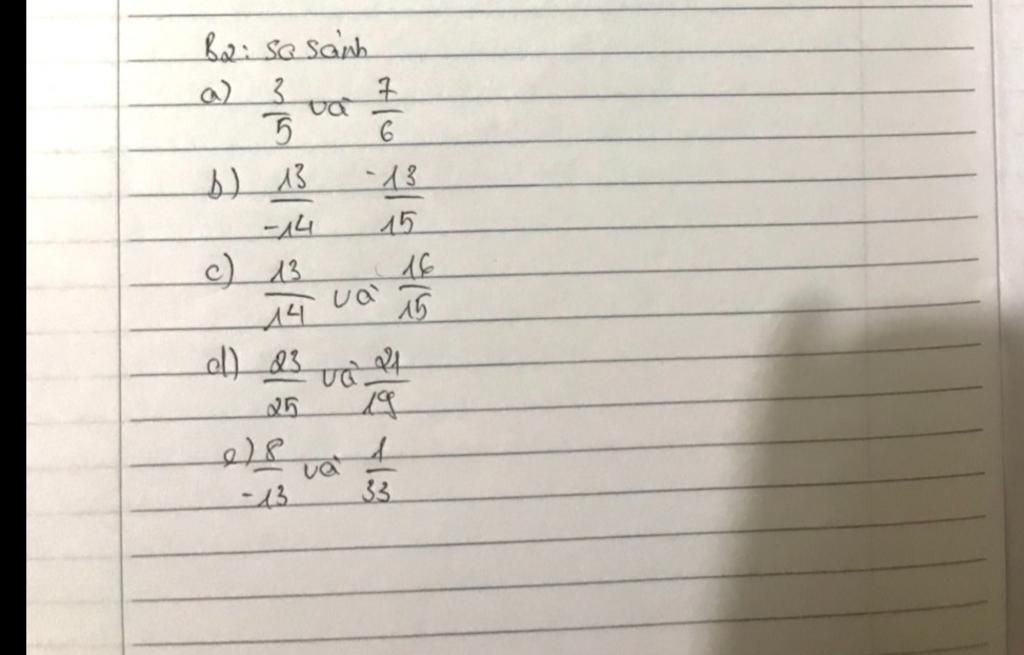 B2: So sánh
a) 3/5 và 7/6
b) 13/-14 -13/15
c) 13/14 và 16/15
d) 23/25 và 21/19
e) 8/-13 và 1/33